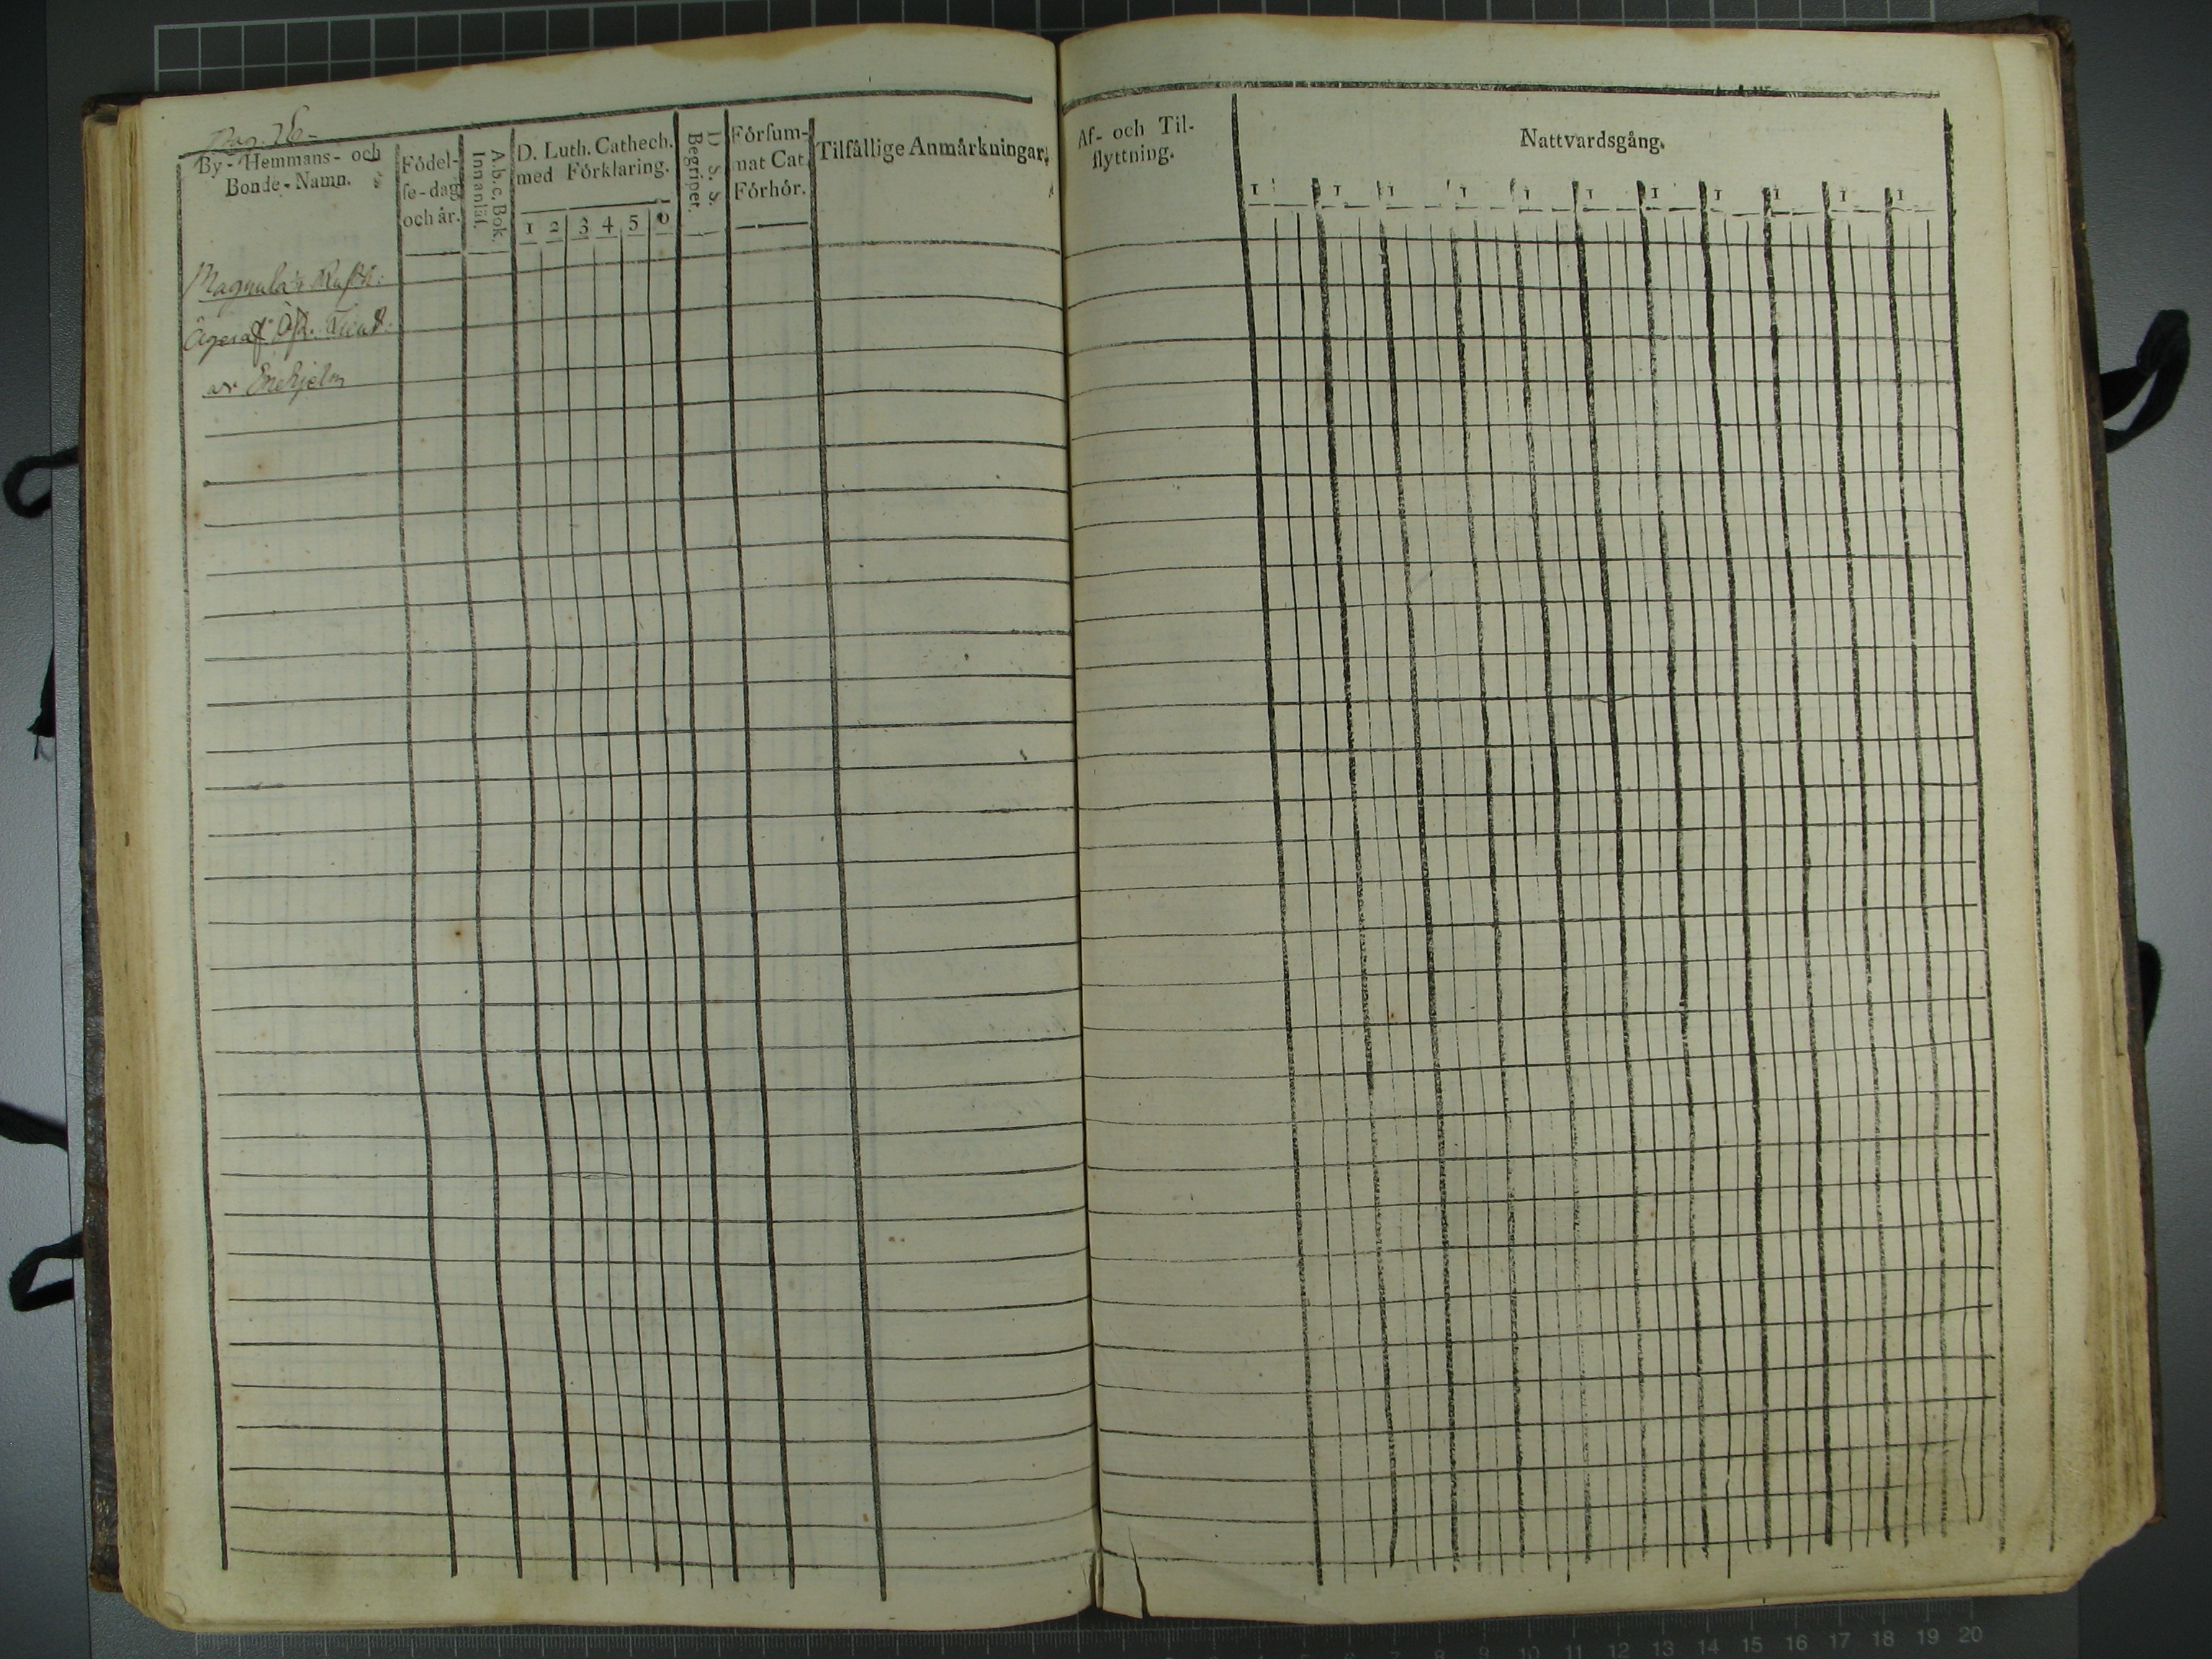 Pag. 26.
By - Hemmans - och
Bonde - Namn.
Födel-
se-dag
och år.
A.b.c. Bok.
Innanläs.
D. Luth. Cathech.
med Förklaring.
1 2 3 4 5
D. S. S.
Begriper.
Försum-
nat Cat.
Förhör.
Tilfällige Anmärkningar.
Magnula Rusth:
Äges af Öf. Lieut.
av Enehjelm
Af- och Til-
flyttning.
Nattvardsgång.
1 1 1 1 1 1 1 1 1 1 1
10 11 12 13 14 15 16 17 18 19 20